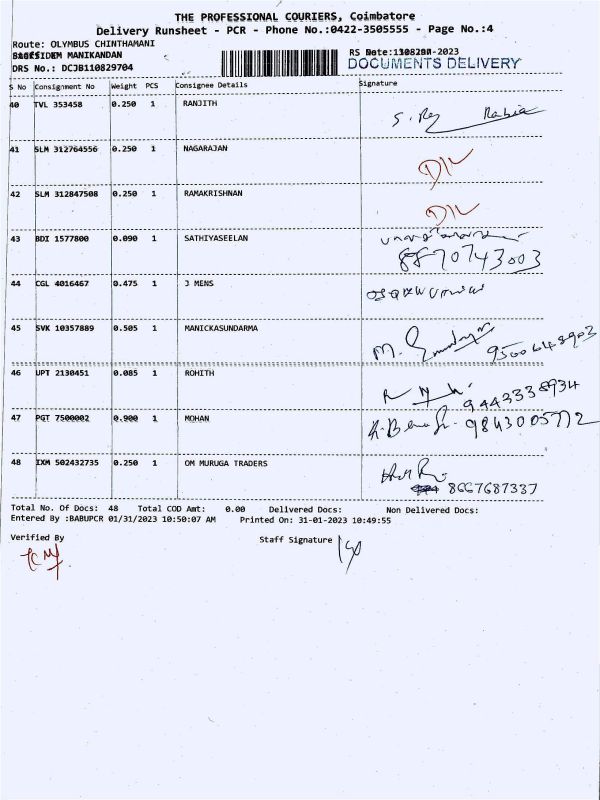 THE PROFESSIONAL COURIERS, Coimbatore
Delivery Runsheet - PCR - Phone No.:0422-3505555 - Page No.:4
Route: OLYMBUS CHINTHAMANI
MANIKANDAN
DRS No.: DCJB110829704
RS Date: -2023
DOCUMENTS DELIVERY
S No Consignment No Weight PCS Consignee Details Signature
40 TVL 353458 0.250 1 RANJITH
41 SLM 312764556 0.250 1 NAGARAJAN D/L
42 SLM 312847508 0.250 1 RAMAKRISHNAN D/L
43 BDI 1577800 0.090 1 SATHIYASEELAN
8870743003
44 CGL 4016467 0.475 1 J MENS
45 SVK 10357889 0.505 1 MANICKASUNDARMA
M. 9500648903
46 UPT 2130451 0.085 1 ROHITH
9443338934
47 PGT 7500002 0.900 1 MOHAN
9843005772
48 IXM 502432735 0.250 1 OM MURUGA TRADERS
8667687337
Total No. Of Docs: 48 Total COD Amt: 0.00 Delivered Docs: Non Delivered Docs:
Entered By :BABUPCR 01/31/2023 10:50:07 AM Printed On: 31-01-2023 10:49:55
Verified By Staff Signature